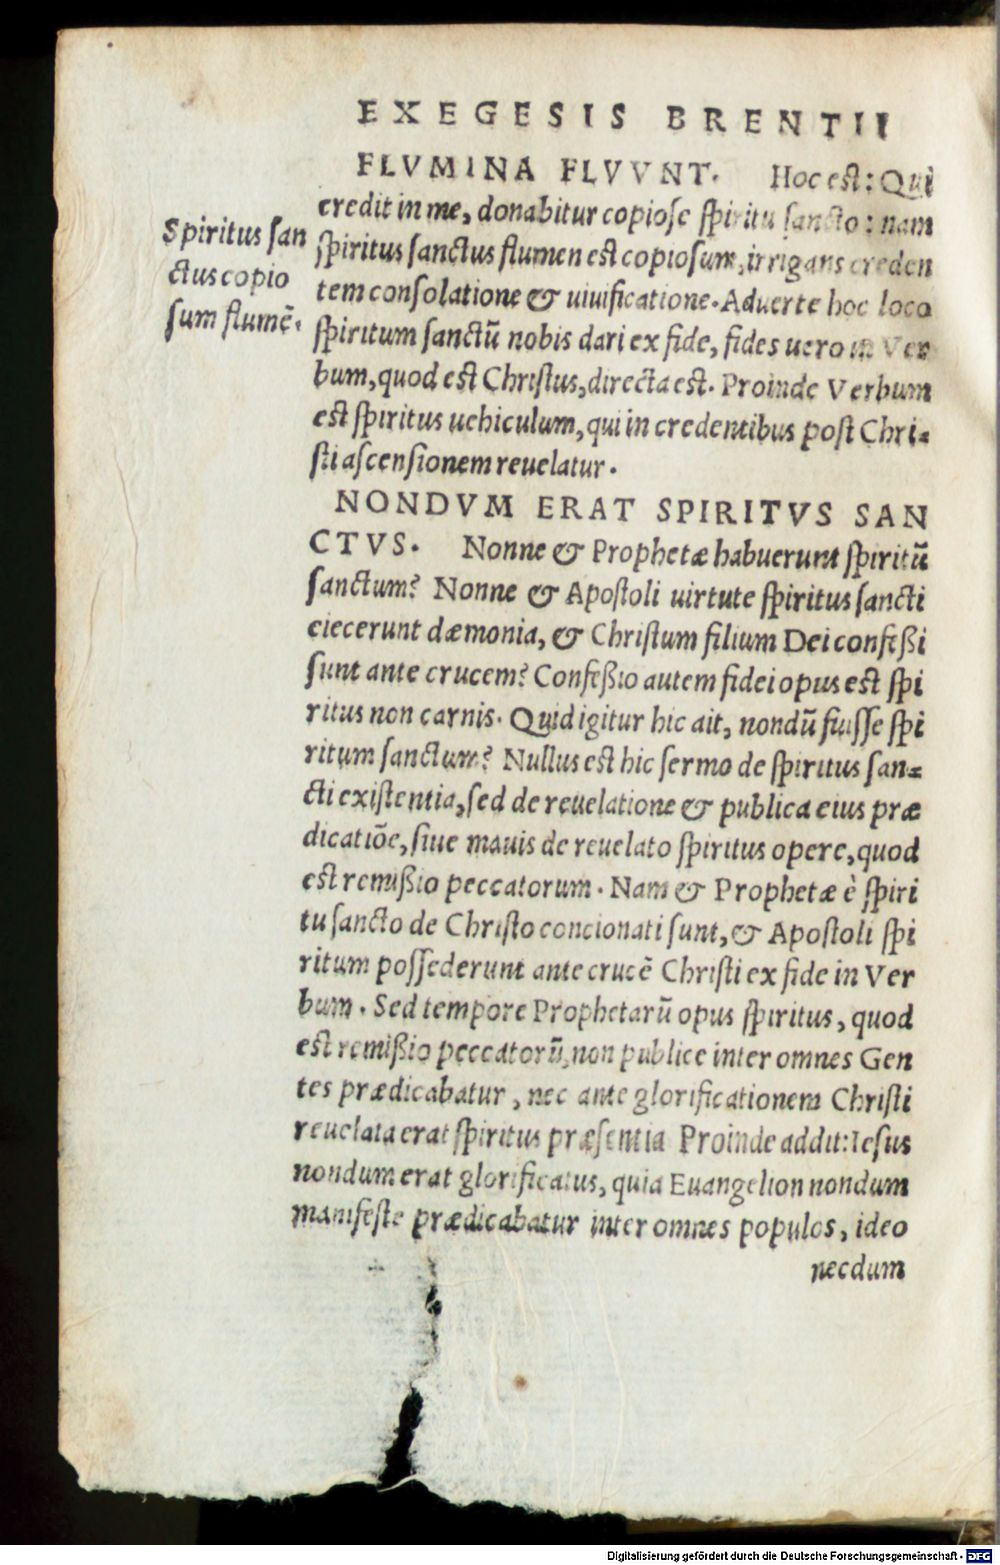 EXEGESIS BRENTII
FLVMINA FLVVNT. Hoc est: Qui
credit in me, donabitur copiose spiritu sancto: nam
spiritus sanctus flumen est copiosum, irrigans creden
tem consolatione & uiuificatione. Aduerte hoc loco
spiritum sanctū nobis dari ex fide, fides uero in Ver
bum, quod est Christus, directa est. Proinde Verbum
est spiritus uehiculum, qui in credentibus post Chri-
sti ascensionem reuelatur.
Spiritus san
ctus copio
sum flumē.
NONDVM ERAT SPIRITVS SAN
CTVS. Nonne & Prophetæ habuerunt spiritū
sanctum? Nonne & Apostoli uirtute spiritus sancti
eiecerunt dæmonia, & Christum filium Dei confeßi
sunt ante crucem? Confeßio autem fidei opus est spi
ritus non carnis. Quid igitur hic ait, nondū fuisse spi
ritum sanctum? Nullus est hic sermo de spiritus san-
cti existentia, sed de reuelatione & publica eius præ
dicatiōe, siue mauis de reuelato spiritus opere, quod
est remißio peccatorum. Nam & Prophetæ è spiri
tu sancto de Christo concionati sunt, & Apostoli spi
ritum possederunt ante crucē Christi ex fide in Ver
bum. Sed tempore Prophetarū opus spiritus, quod
est remißio peccatorū, non publice inter omnes Gen
tes prædicabatur, nec ante glorificationem Christi
reuelata erat spiritus præsentia Proinde addit: Iesus
nondum erat glorificatus, quia Euangelion nondum
manifeste prædicabatur inter omnes populos, ideo
necdum
Digitalisierung gefördert durch die Deutsche Forschungsgemeinschaft - DFG